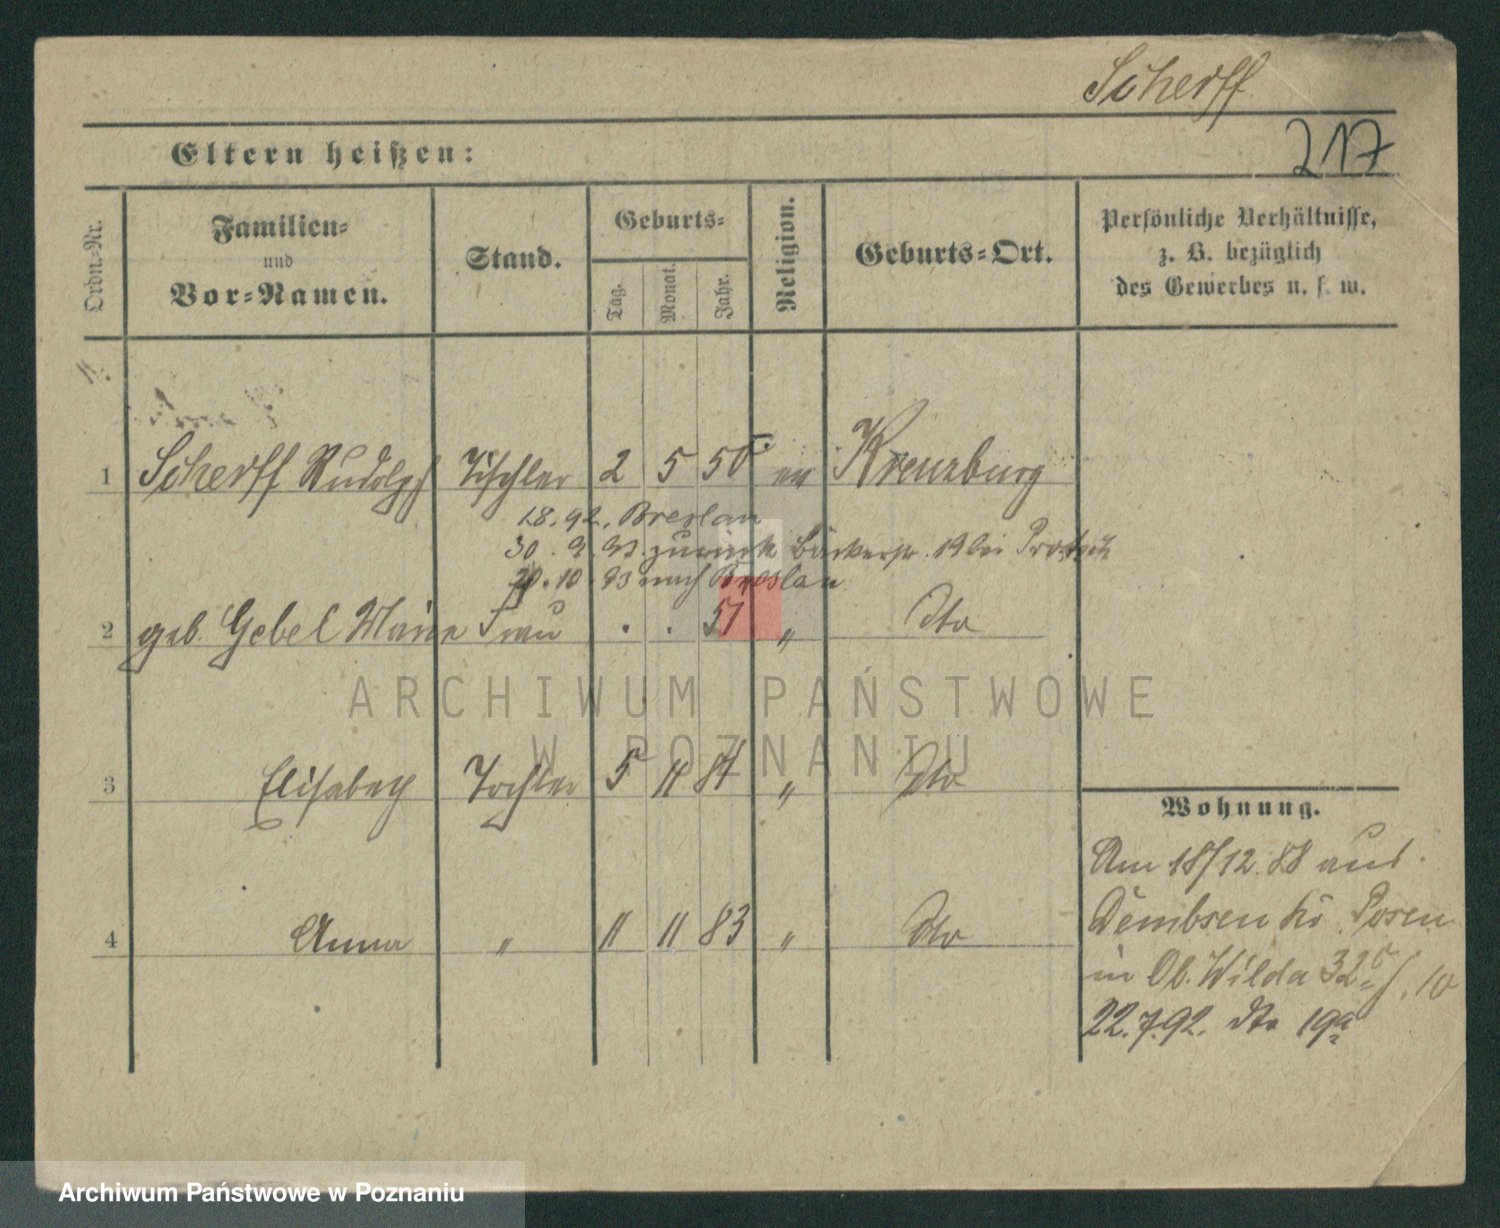 Scherff
217
Eltern heißen:
Ordn.-Nr.
Familien-
und
Vor-Namen.
Stand.
Geburts-
Tag.
Monat.
Jahr.
Religion.
Geburts-Ort.
Persönliche Verhältnisse,
z. B. bezüglich
des Gewerbes u. s. w.
1 Scherff Rudolph Tischler 2 5 50 ev Kreuzburg
1.8.92. Breslau
30. 9. 93 zurück Bäckerstr. 19 bei
20.10.93 nach Breslau
2 geb. Gebel Marie Frau . . 51 " dto
ARCHIWUM PAŃSTWOWE
W POZNANIU
3 Elisabeth Tochter 5 11 84 " dto
4 Anna " 11 11 83 " dto
Wohnung.
Am 18/12.88 aus
Dembsen Kr. Posen
in Ob. Wilda 32
22.7.92. dto 19a
Archiwum Państwowe w Poznaniu